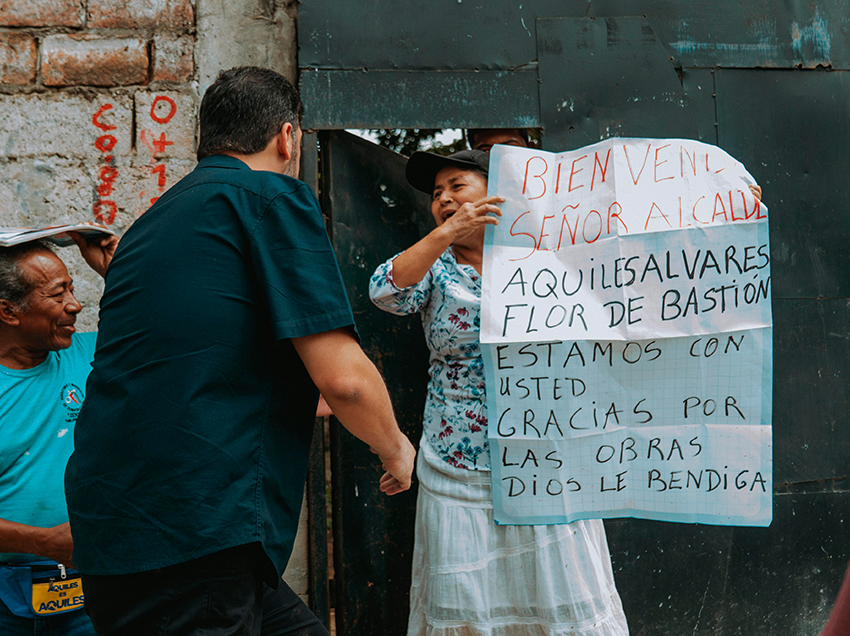 BIENVENI
SEÑOR AlCALDE
AQUILES ALVARES
FLOR DE BASTIÓN
ESTAMOS CON
USTED
GRACIAS POR
LAS OBRAS
DIOS LE BENDIGA
AQUILES ES
AQUILES